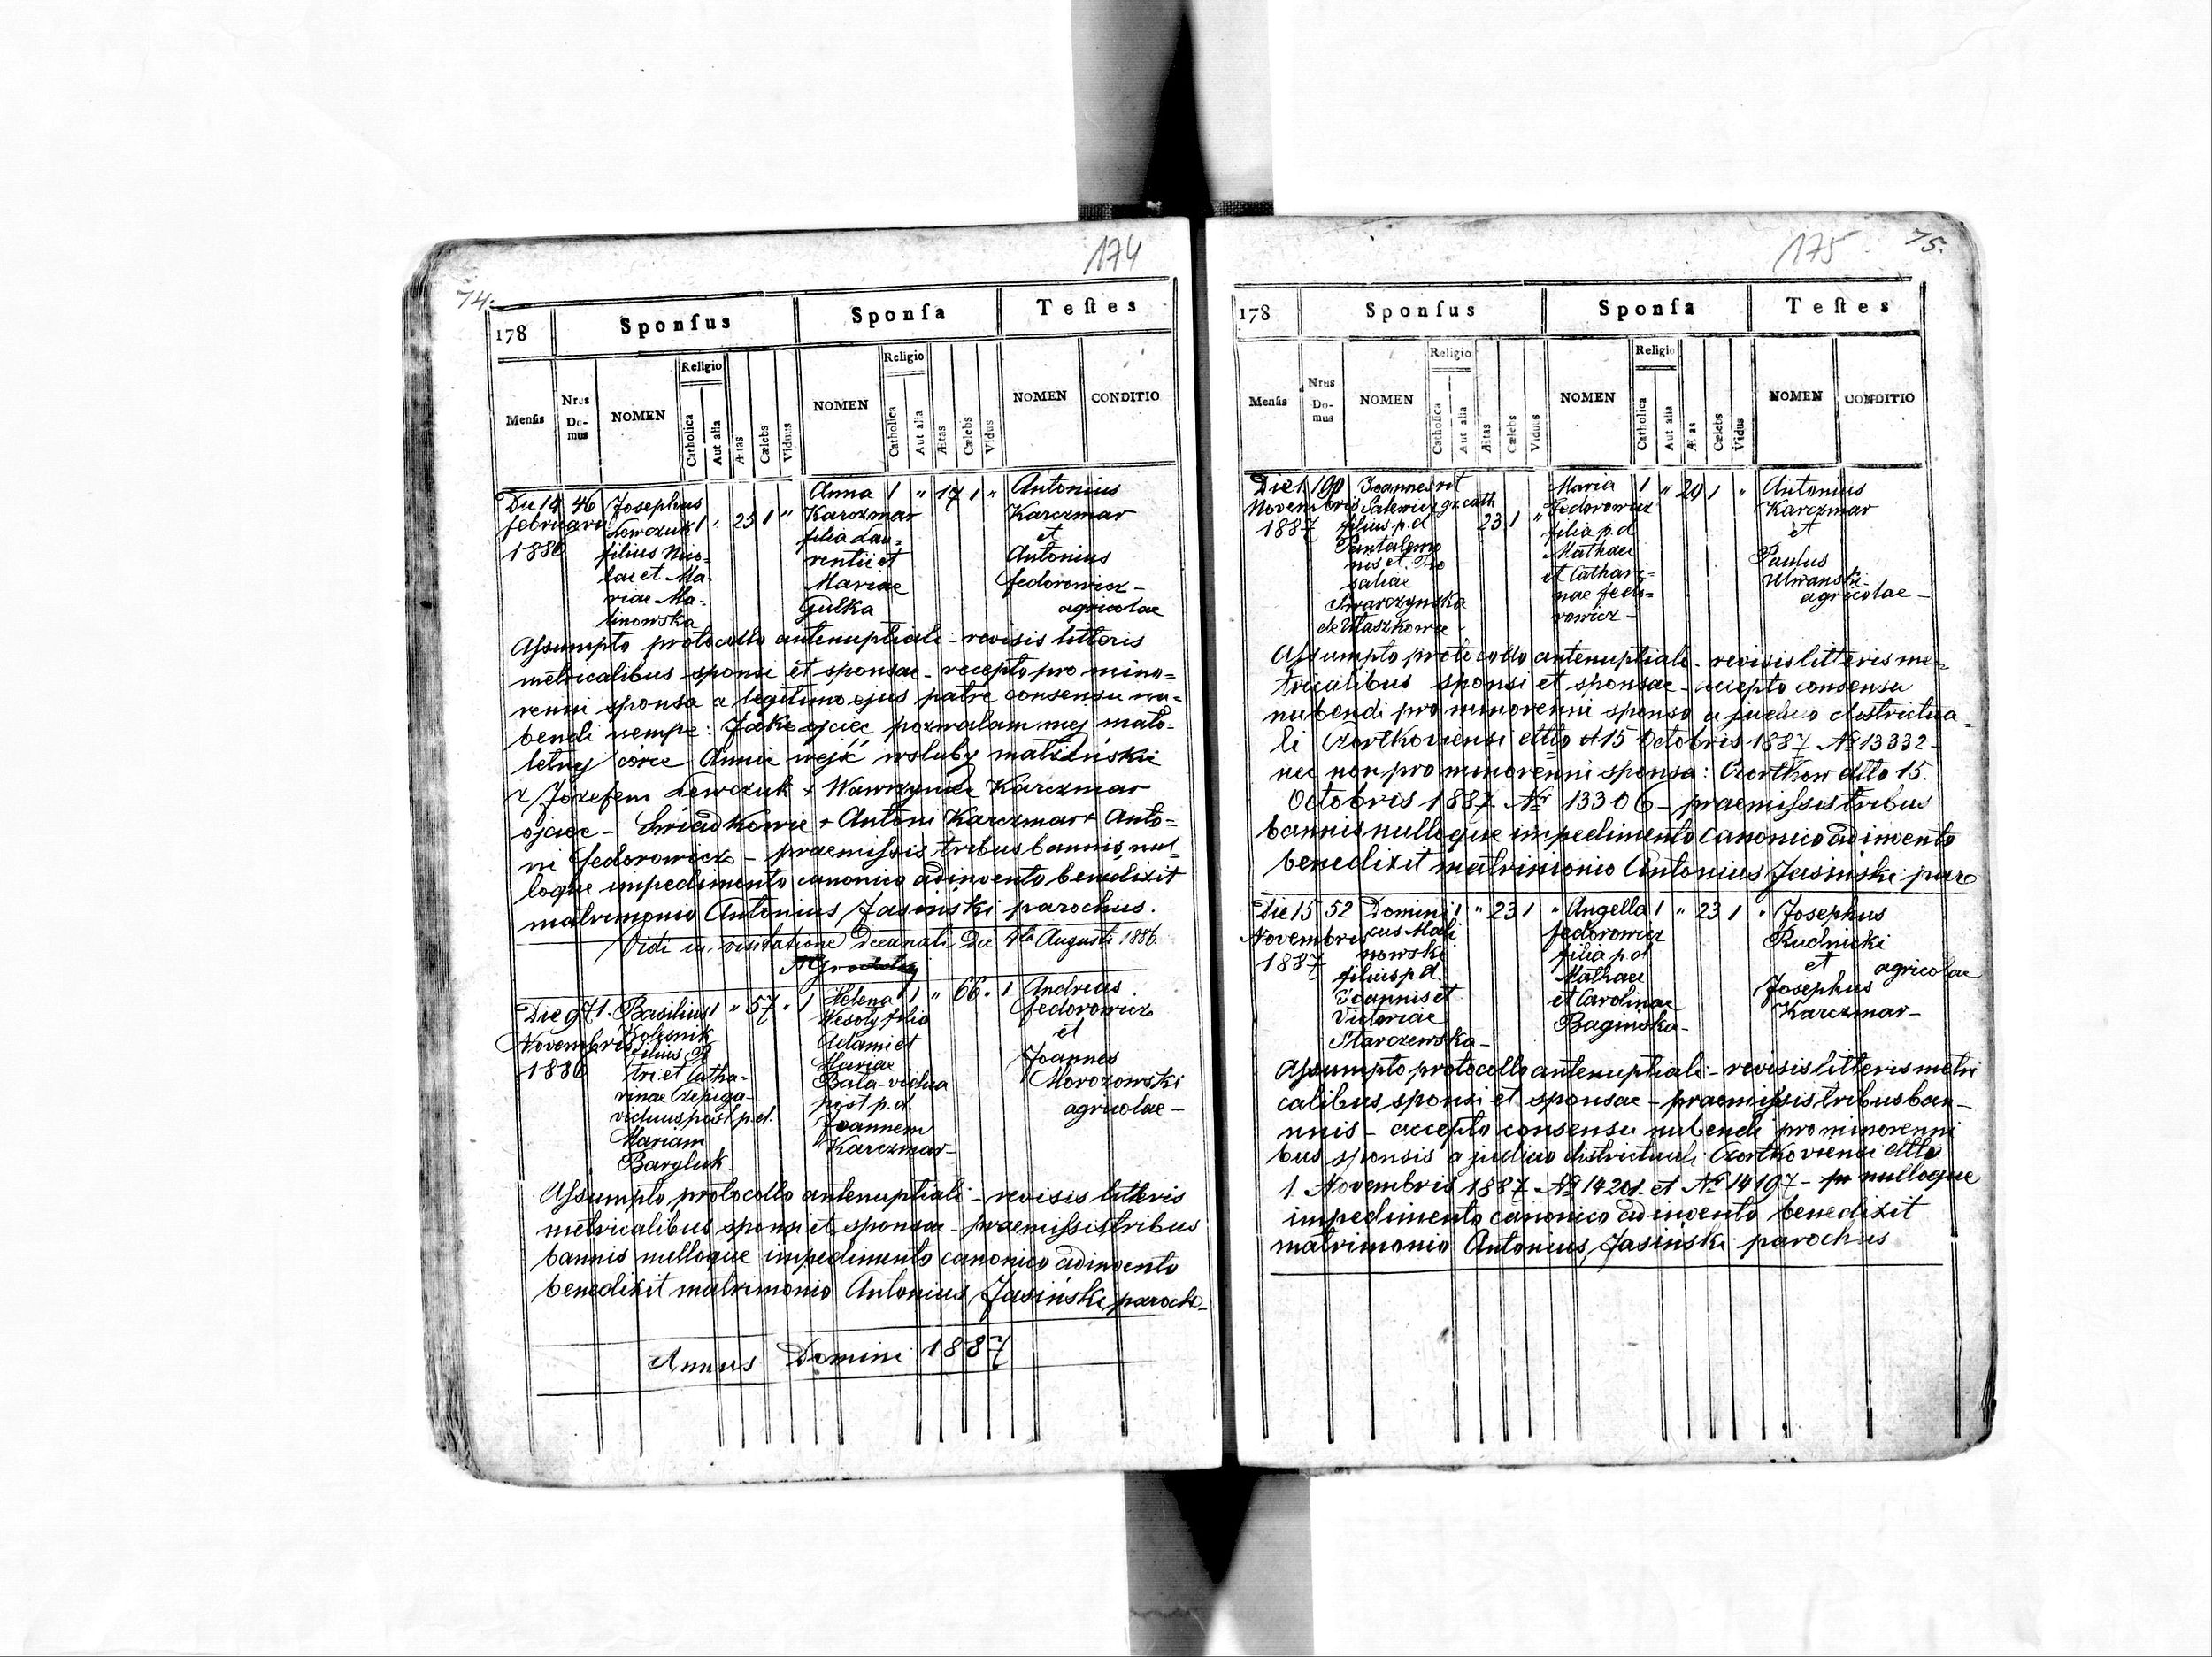 174
74.
178 Sponſus Sponſa Teſtes
Menſis Nrus Do-mus NOMEN Religio Catholica Aut alia Ætas Cælebs Viduus NOMEN Religio Catholica Aut alia Ætas Cælebs Vidus NOMEN CONDITIO
Die 14 46 Josephus Anna 1 " 17 1 " Antonius
februarii Lewczuk 1 " 25 1 " Karczmar Karczmar
1886 filius Nico- filia Lau- et
lai et Ma- rentii et Antonius
riae Ma- Mariae fedorowicz -
linowska Gulka agricolae
Assumpto protocollo antenuptiali - revisis litteris
metricalibus sponsi et sponsae - recepto pro mino=
renni sponsa a legitimo ejus patre consensu nu=
bendi nempe: Jako ojciec pozwalam mej mało=
letnej córce Annie wejść w śluby małżeńskie
z Józefem Lewczuk + Wawrzyniec Karczmar
ojciec - Świadkowie + Antoni Karczmar + Anto=
ni fedorowicz - praemissis tribus bannis, nul=
loque impedimento canonico adinvento benedixit
matrimonio Antonius Jasinski parochus.
Vidi in visitatione decanali Die 4ta Augusti 1886
Die 9 71. Basilius 1 " 57 " 1 Helena 1 " 66 " 1 Andreas
Novembris Kolesnik Wesoly filia fedorowicz
1886 filius Pe Adami et et
tri et Catha- Mariae Joannes
rinae Czepiga- Bala - vidua Morozowski
viduus post p.d. post p.d. agricolae -
Mariam Joannem
Bargluk - Karczmar -
Assumpto protocollo antenuptiali - revisis litteris
metricalibus sponsi et sponsae - praemissis tribus
bannis nulloque impedimento canonico adinvento
benedixit matrimonio Antonius Jasiński paroch-
Annus Domini 1887
175
75.
178 Sponſus Sponſa Teſtes
Menſis Nrus Do-mus NOMEN Religio Catholica Aut alia Ætas Cælebs Viduus NOMEN Religio Catholica Aut alia Æt as Cælebs Vidus NOMEN CONDITIO
Die 1 190 Joannes rit Maria 1 " 20 1 " Antonius
Novembris Salewicz gr. cath fedorowicz Karczmar
1887 filius p.d. 23 1 " filia p.d. et
Pantalemo Mathaei Paulus
nis et Ro et Cathari= Ulwanski -
saliae nae fedo= agricolae -
Swarczynska rowicz -
de Ułaszkowce -
Assumpto protocollo antenuptiali - revisis litteris me=
tricalibus sponsi et sponsae - accepto consensu
nubendi pro minorenni sponso a judicio districtua=
li Czortkoviensi ddto 15 Octobris 1887 No 13332 -
nec non pro minorenni sponsa: Czortkow ddto 15.
Octobris 1887 No 13306 - praemissis tribus
bannis nulloque impedimento canonico adinvento
benedixit matrimonio Antonius Jasinski paro
Die 15 52 Domini 1 " 23 1 " Angella 1 " 23 1 " Josephus
Novembris cus Mali fedorowicz Rudnicki
1887 nowski filia p.d. et agricolae
filius p.d. Mathaei Josephus
Joannis et et Carolinae Karczmar -
Victoriae Baginska -
Starczewska -
Assumpto protocollo antenuptiali - revisis litteris metri
calibus sponsi et sponsae - praemissis tribus ban-
nnis - accepto consensu nubendi pro minorenni
bus sponsis a judicio districtuali Czortkoviensi ddto
1 Novembris 1887 No 14201. et No 14197 - nulloque
impedimento canonico adinvento benedixit
matrimonio Antonius Jasinski parochus